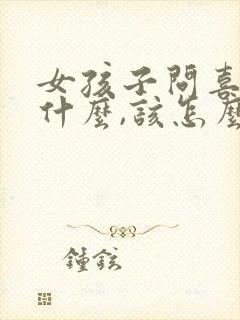 女孩子問喜
什麼,該怎麼
鍾鉉